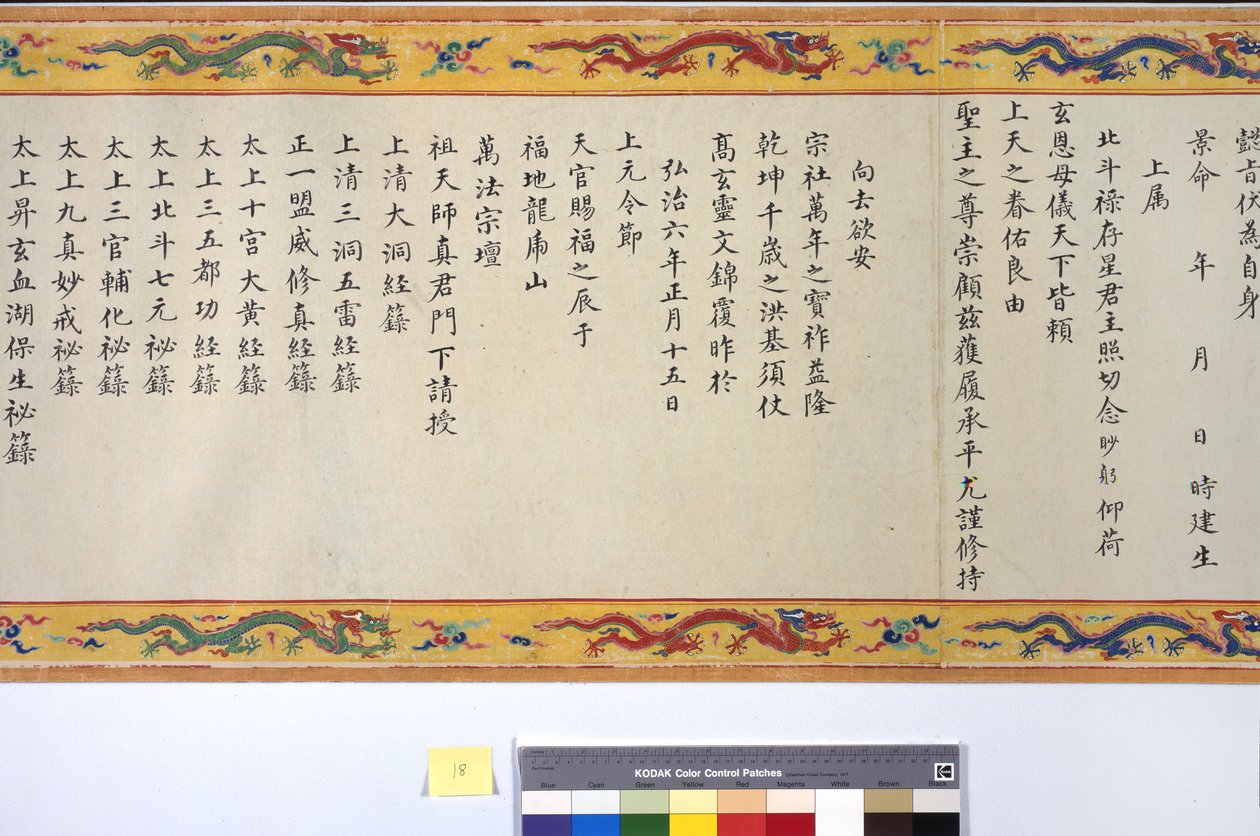 懿旨伏為自身
景命　年　月　日時建生
上属
北斗祿存星君主照切念眇躬仰荷
玄恩母儀天下皆賴
上天之眷佑良由
聖主之尊崇顧兹獲履承平尤謹修持
向去欲安
宗社萬年之寶祚益隆
乾坤千歲之洪基須仗
髙玄靈文錦覆昨於
弘治六年正月十五日
上元令節
天官賜福之辰于
福地龍虎山
萬法宗壇
祖天師真君門下請授
上清大洞経籙
上清三洞五雷経籙
正一盟威修真経籙
太上十宫大黄経籙
太上三五都功経籙
太上北斗七元祕籙
太上三官輔化祕籙
太上九真妙戒祕籙
太上昇玄血湖保生祕籙
18
KODAK Color Control Patches
Blue Cyan Green Yellow Red Magenta White Brown Black